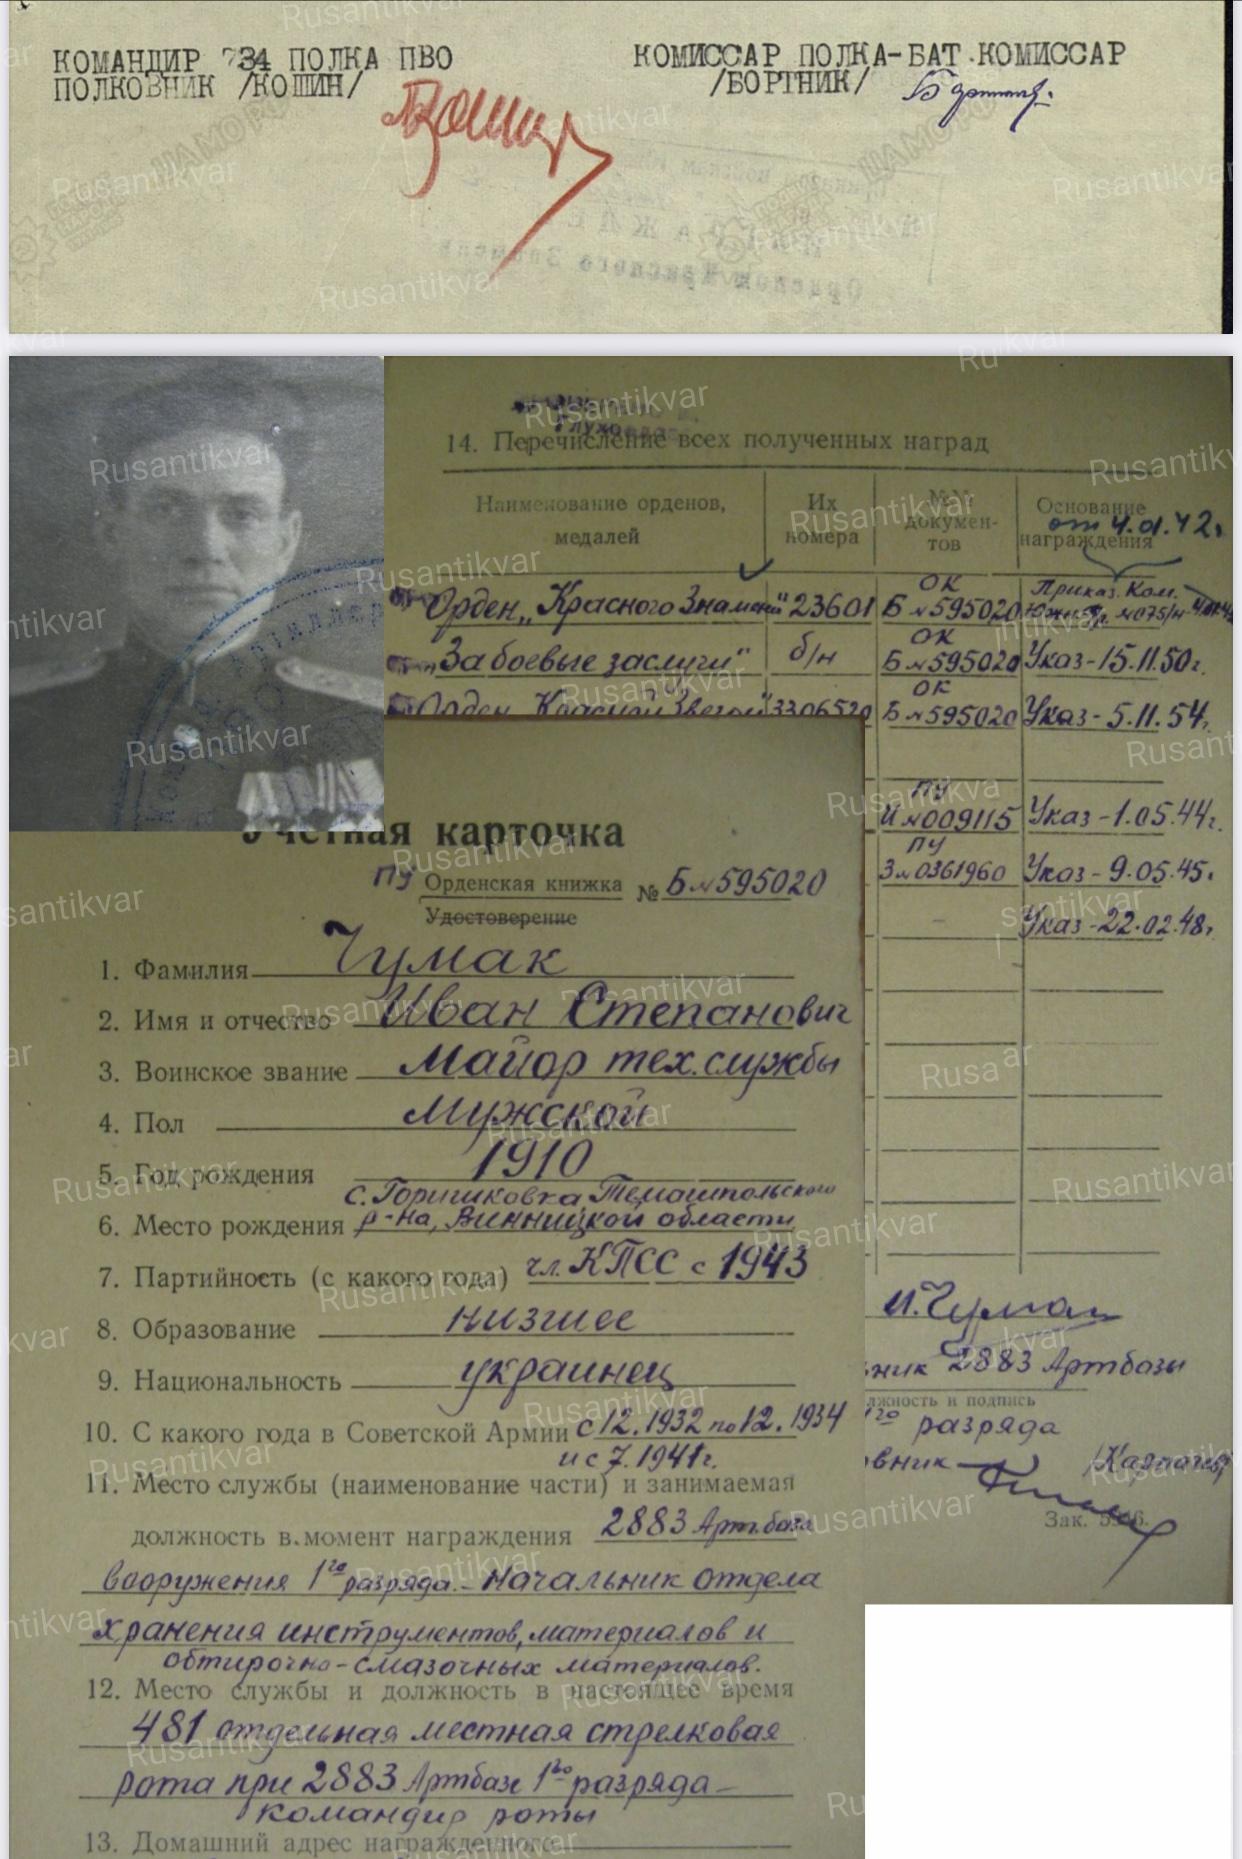 КОМАНДИР 734 ПОЛКА ПВО
ПОЛКОВНИК /КОШИН/
КОМИССАР ПОЛКА-БАТ.КОМИССАР
/БОРТНИК/
14. Перечисление всех полученных наград
Наименование орденов, медалей
Их номера
№№ документов
Основание награждения
от 4.01.42г.
Орден „Красного Знамени" 23601 ОК Б №595020 Приказ Ком. Южн. фр. №075/н
„За боевые заслуги" б/н ОК Б №595020 Указ-15.11.50г.
Орден „Красной Звезды" 3306520 ОК Б №595020 Указ-5.11.54г.
ПУ И №009115 Указ-1.05.44г.
ПУ З №0361960 Указ-9.05.45г.
Указ-22.02.48г.
Учетная карточка
ПУ Орденская книжка № Б №595020
Удостоверение
1. Фамилия Чумак
2. Имя и отчество Иван Степанович
3. Воинское звание Майор тех. службы
4. Пол Мужской
5. Год рождения 1910
с. Горишковка Томашпольского
6. Место рождения р-на, Винницкой области
7. Партийность (с какого года) чл. КПСС с 1943
8. Образование низшее
9. Национальность украинец
10. С какого года в Советской Армии с 12.1932 по 12.1934
и с 7.1941г.
11. Место службы (наименование части) и занимаемая
должность в момент награждения 2883 Арт. база
вооружения 1го разряда - Начальник отдела
хранения инструментов, материалов и
обтирочно-смазочных материалов.
12. Место службы и должность в настоящее время
481 отдельная местная стрелковая
рота при 2883 Артбазе 1го разряда -
командир роты
13. Домашний адрес награжденного
И. Чумак
ник 2883 Артбазы
лжность и подпись
1го разряда
вник
Зак.
Rusantikvar